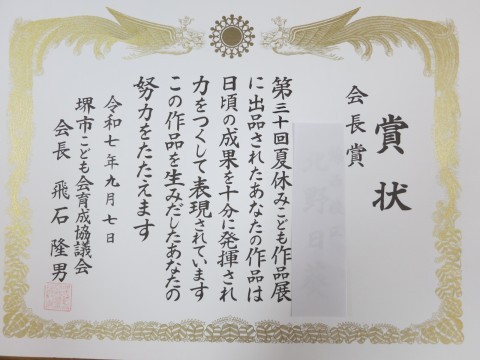 賞状
会長賞
第三十回夏休みこども作品展
に出品されたあなたの作品は
日頃の成果を十分に発揮され
力をつくして表現されています
この作品を生みだしたあなたの
努力をたたえます
令和七年九月七日
堺市こども会育成協議会
会長 飛石隆男